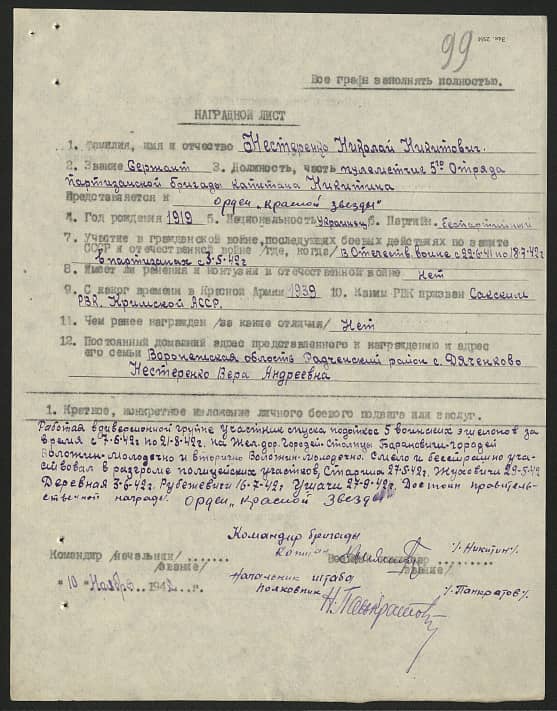 99
Все графы заполнять полностью.
НАГРАДНОЙ ЛИСТ
1. Фамилия, имя и отчество Нестеренко Николай Никитович.
2. Звание Сержант 3. Должность, часть пулеметчик 5го Отряда
Партизанской бригады капитана Никитина
Представляется к Орден "Красной звезды"
4. Год рождения 1919 5. Национальность Украинец 6. Партийн. беспартийный
7. Участие в гражданской войне, последующих боевых действиях по защите
СССР и отечественной войне /где, когда/ В Отечеств войне с 22-6-41 по 18-7-42г
в партизанах с 3-5-42г
8. Имеет ли ранения и контузии в отечественной войне Нет
9. С каког времени в Красной Армии 1939 10. Каким РВК призван Сакским
РВК. Крымской АССР.
11. Чем ранее награжден /за какие отличия/ Нет
12. Постоянный домашний адрес представленного к награждению и адрес
его семьи Воронежская область Радченский район с. Дяченково
Нестеренко Вера Андреевна
1. Краткое, конкретное изложение личного боевого подвига или заслуг.
Работая в диверсионной группе участник спуска под откос 5 воинских эшелонов за
время с 7-6-42г по 21-8-42г. на Желдор. Городей-Столпцы Барановичи-Городей
Воложин-Молодечно и вторично Воложин-Молодечно. Смело и бесстрашно уча-
ствовал в разгроме полицейских участков, Старица 27-5-42г. Жуковичи 29-5-42
Деревная 3-6-42г. Рубежевичи 16-7-42г Ушачи 27-9-42г. Достоин правитель-
ственной награды. Орден "Красной Звезды"
Командир бригады
Капитан /Никитин/
Командир /начальник/ ......
/звание/ /звание/
Начальник штаба
полковник Н. Панкратов /Панкратов/
"10" Ноября 1942..г.